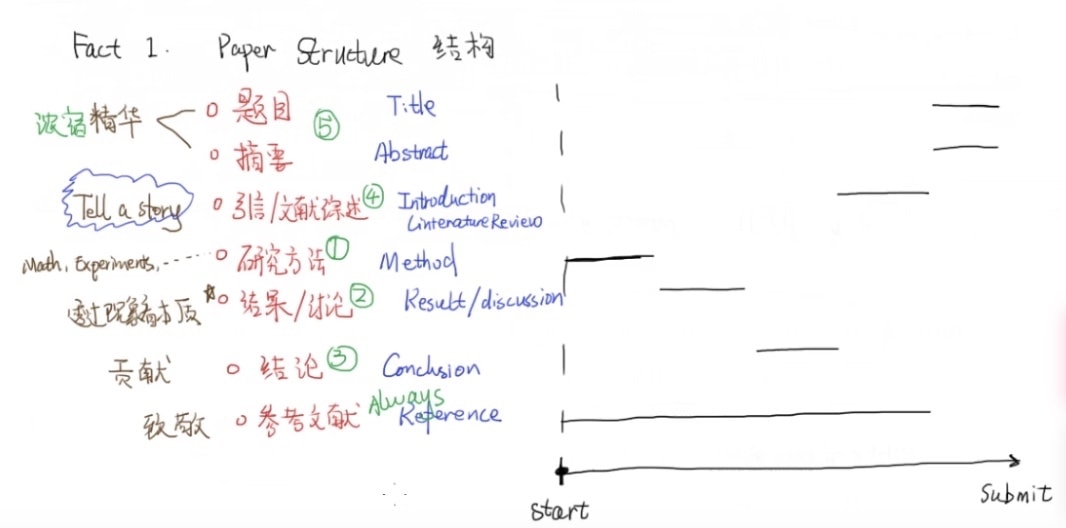 Fact 1. Paper Structure 结构
浓缩精华
题目 ⑤ Title
摘要 Abstract
Tell a story 引言/文献综述 ④ Introduction
Linterature Review
Math, Experiments, ----- 研究方法 ① Method
透过现象看本质 * 结果/讨论 ② Result/discussion
贡献 结论 ③ Conclusion
致敬 参考文献 Always Reference
start
Submit